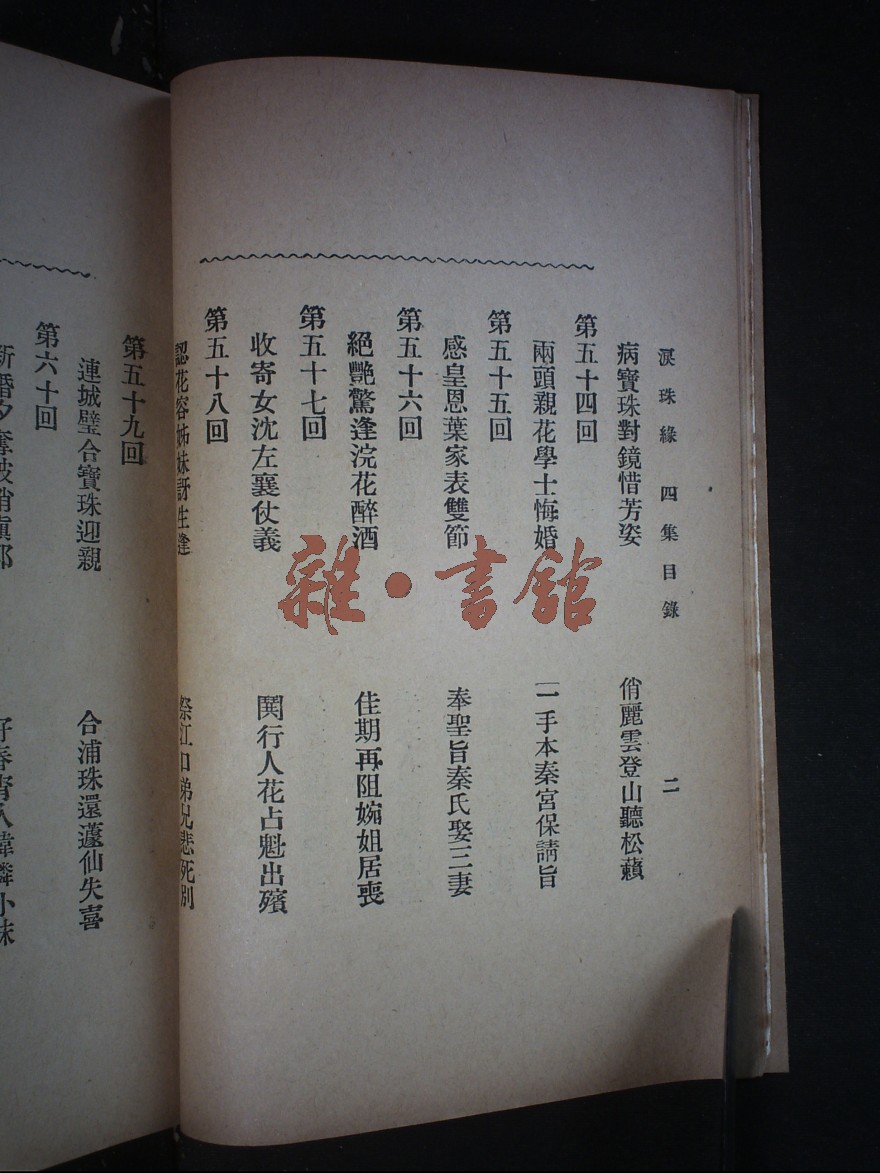 淚珠緣 四集目錄 二
病寶珠對鏡惜芳姿 俏麗雲登山聽松籟
第五十四回
兩頭親花學士悔婚 一手本秦宮保請旨
第五十五回
感皇恩葉家表雙節 奉聖旨秦氏娶三妻
第五十六回
絕艷驚逢浣花醉酒 佳期再阻婉姐居喪
第五十七回
收寄女沈左襄仗義 鬨行人花占魁出殯
第五十八回
認花容姊妹訝生逢 祭江口弟兄悲死別
第五十九回
連城璧合寶珠迎親 合浦珠還蘧仙失喜
第六十回
新婚夕奪被

雜·書館